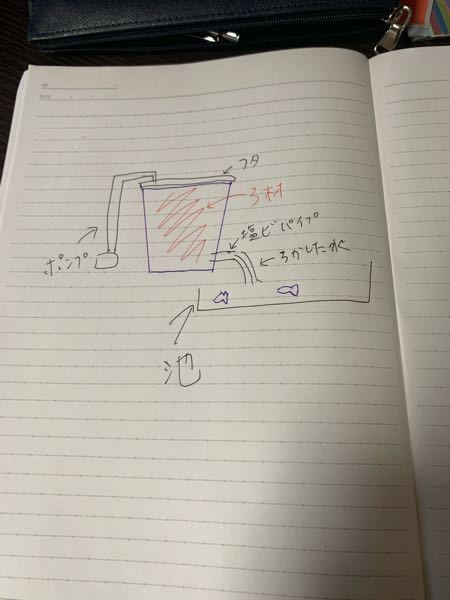 フタ
ろ材
塩ビパイプ
ポンプ
ろかした水
池